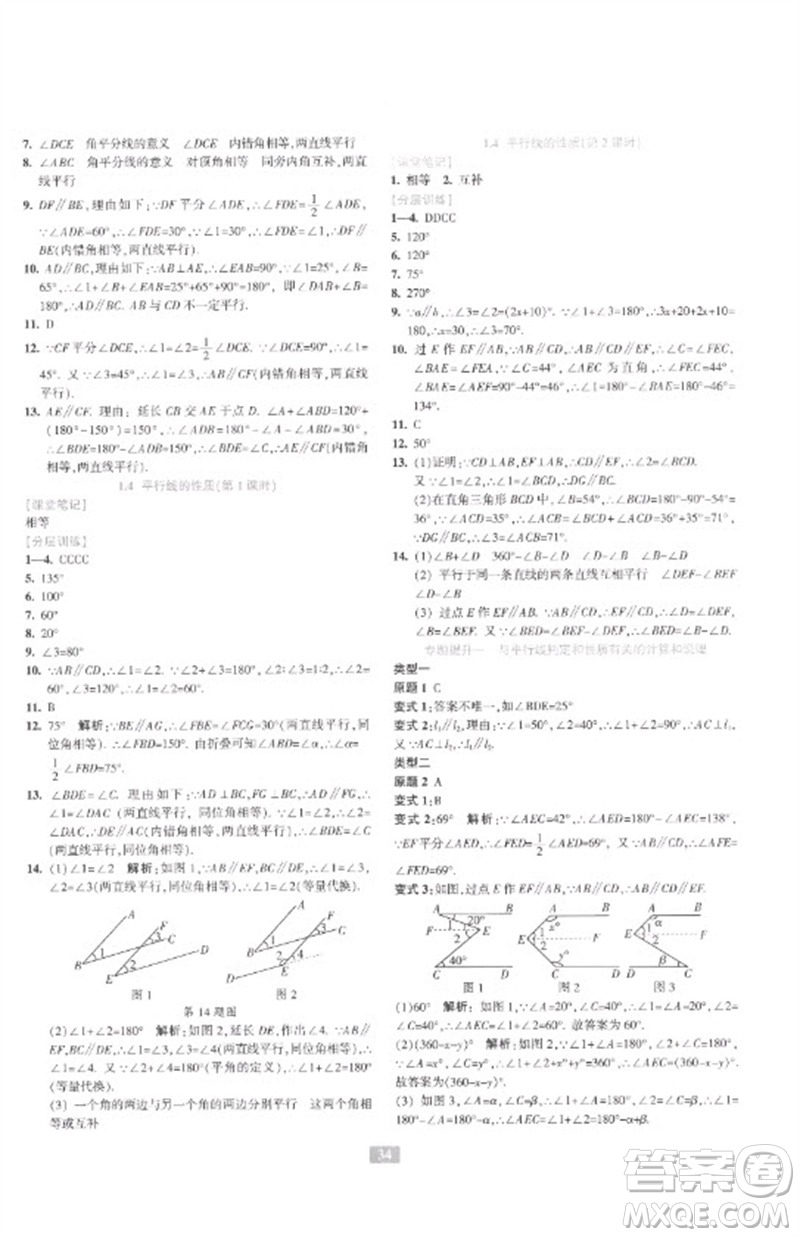 7. ∠DCE 角平分线的意义 ∠DCE 内错角相等,两直线平行
8. ∠ABC 角平分线的意义 对顶角相等 同旁内角互补,两直
线平行
9. DF∥BE,理由如下:∵DF平分∠ADE,∴∠FDE=1/2∠ADE,
∵∠ADE=60°,∴∠FDE=30°,∵∠1=30°,∴∠FDE=∠1,∴DF∥
BE(内错角相等,两直线平行)
10. AD∥BC,理由如下:∵AB⊥AE,∴∠EAB=90°,∵∠1=25°,∠B=
65°,∴∠1+∠B+∠EAB=25°+65°+90°=180°,即∠DAB+∠B=
180°,∴AD∥BC. AB与CD不一定平行.
11. D
12. ∵CF平分∠DCE,∴∠1=∠2=1/2∠DCE. ∵∠DCE=90°,∴∠1=
45°. 又∵∠3=45°,∴∠1=∠3,∴AB∥CF(内错角相等,两直线
平行).
13. AE∥CF. 理由:延长CB交AE于点D. ∠A+∠ABD=120°+
(180°-150°)=150°,∴∠ADB=180°-150°=30°,
∴∠BDE=180°-∠ADB=150°,∵∠C=150°,∴∠BDE=∠C(内错角
相等,两直线平行)
1.4 平行线的性质(第1课时)
[课堂笔记]
相等
[分层训练]
1—4. CCCC
5. 135°
6. 100°
7. 60°
8. 20°
9. ∠3=80°
10. ∵AB∥CD,∴∠1=∠2. ∵∠2+∠3=180°,∠2:∠3=1:2,∴∠2=
60°,∠3=120°,∴∠1=60°.
11. B
12. 75° 解析:∵BE∥AG,∴∠FBE=∠FCG=30°(两直线平行,同
位角相等). ∴∠FBD=150°. 由折叠可知∠ABE=∠α,∴∠α=
1/2∠FBD=75°.
13. ∠BDE=∠C. 理由如下:∵AD⊥BC,FG⊥BC,∴AD∥FG,
∴∠1=∠DAC(两直线平行,同位角相等). 又∵∠1=∠2,∴∠2=
∠DAC,∴DE∥AC(内错角相等,两直线平行),∴∠BDE=∠C
(两直线平行,同位角相等).
14. (1)∠1=∠2 解析:如图1,∵AB∥EF,BC∥DE,∴∠1=∠3,
∠2=∠3(两直线平行,同位角相等). ∴∠1=∠2(等量代换).
A F 3 C 1 B D 2 E
图1
A F 3 C 1 B D 2 4 E
图2
第14题图
(2)∠1+∠2=180° 解析:如图2,延长DE,作出∠4. ∵AB∥
EF,BC∥DE,∴∠1=∠3,∠4=∠3(两直线平行,同位角相等).
∴∠1=∠4. ∵∠2+∠4=180°(平角的定义),∴∠1+∠2=180°
(等量代换).
(3) 一个角的两边与另一个角的两边分别平行 这两个角相
等或互补
1.4 平行线的性质(第2课时)
[课堂笔记]
1. 相等 2. 互补
[分层训练]
1—4. DDCC
5. 120°
6. 120°
7. 75°
8. 270°
9. ∵a∥b,∴∠1=∠2=(2x+10)°. ∵∠1+∠3=180°,∴2x+10+2x+10=
180°,∴x=30,∴∠3=70°.
10. 过E作EF∥AB,∵AB∥CD,∴EF∥CD,∴∠C=∠FEC,
∠BAE=∠FEA,∵∠C=44°,∠AEC=90°,
∴∠FEC=44°,∠BAE=∠FEA=90°-44°=46°,∴∠1=180°-∠BAE=180°-46°=
134°.
11. C
12. 50°
13. (1)证明:∵CD⊥AB,EF⊥AB,∴CD∥EF,∴∠2=∠BCD.
又∵∠1=∠2,∴∠1=∠BCD,∴DG∥BC.
(2)在直角三角形BCD中,∠B=54°,∴∠BCD=180°-90°-54°=
36°,∴∠ACB=∠BCD+∠ACD=36°+35°=71°. 又∵BC∥
DG,∴∠3=∠ACB=71°.
14. (1)∠B+∠D 360°-∠B-∠D ∠B-∠D ∠D-∠B
(2) 平行于同一条直线的两条直线互相平行 ∠DEF ∠DEF-∠BEF
∠D-∠B
(3) 过点E作EF∥AB,∵AB∥CD,∴EF∥CD,∴∠D=∠DEF,
∠B=∠BEF,∵∠BED=∠BEF-∠DEF,∴∠BED=∠B-∠D.
专题提升一 与平行线判定和性质有关的计算和说理
类型一
原题1 C
变式1:答案不唯一,如∠BDE=25°
变式2:l₁∥l₂,理由:∵∠1=50°,∠2=40°,∴∠1+∠2=90°,
又∵∠2+∠3=90°,∴∠1=∠3,∴l₁∥l₂.
类型二
原题2 A
变式1:B
变式2:69° 解析:∵∠AEC=42°,∴∠AED=180°-∠AEC=138°,
∵EF平分∠AED,∴∠FED=1/2∠AED=69°,又∵AB∥CD,∴∠AFE=
∠FED=69°.
变式3:如图,过点E作EF∥AB,∵AB∥CD,∴EF∥CD.
A B 1 20° F 3 E 40° C D
图1
A B E 1 F 2 C D
图2
A B α E 1 F β C D
图3
(1)60° 解析:如图1,∵∠A=20°,∠C=40°,∴∠1=∠A=20°,∠2=
∠C=40°,∴∠AEC=∠1+∠2=60°. 故答案为60°.
(2)(360-x-y)° 解析:如图2,∴∠1+∠A=180°,∠2+∠C=180°,
∵∠A=x°,∠C=y°,∴∠1+∠2+x°+y°=360°,∴∠AEC=(360-x-y)°.
故答案为(360-x-y)°.
(3) 如图3,∠A=α,∠C=β,∴∠1+∠A=180°,∠2=∠C=β,
∴∠1=180°-∠A=180°-α,∴∠AEC=∠1+∠2=180°-α+β.
34
答案圈
MXQE.COM